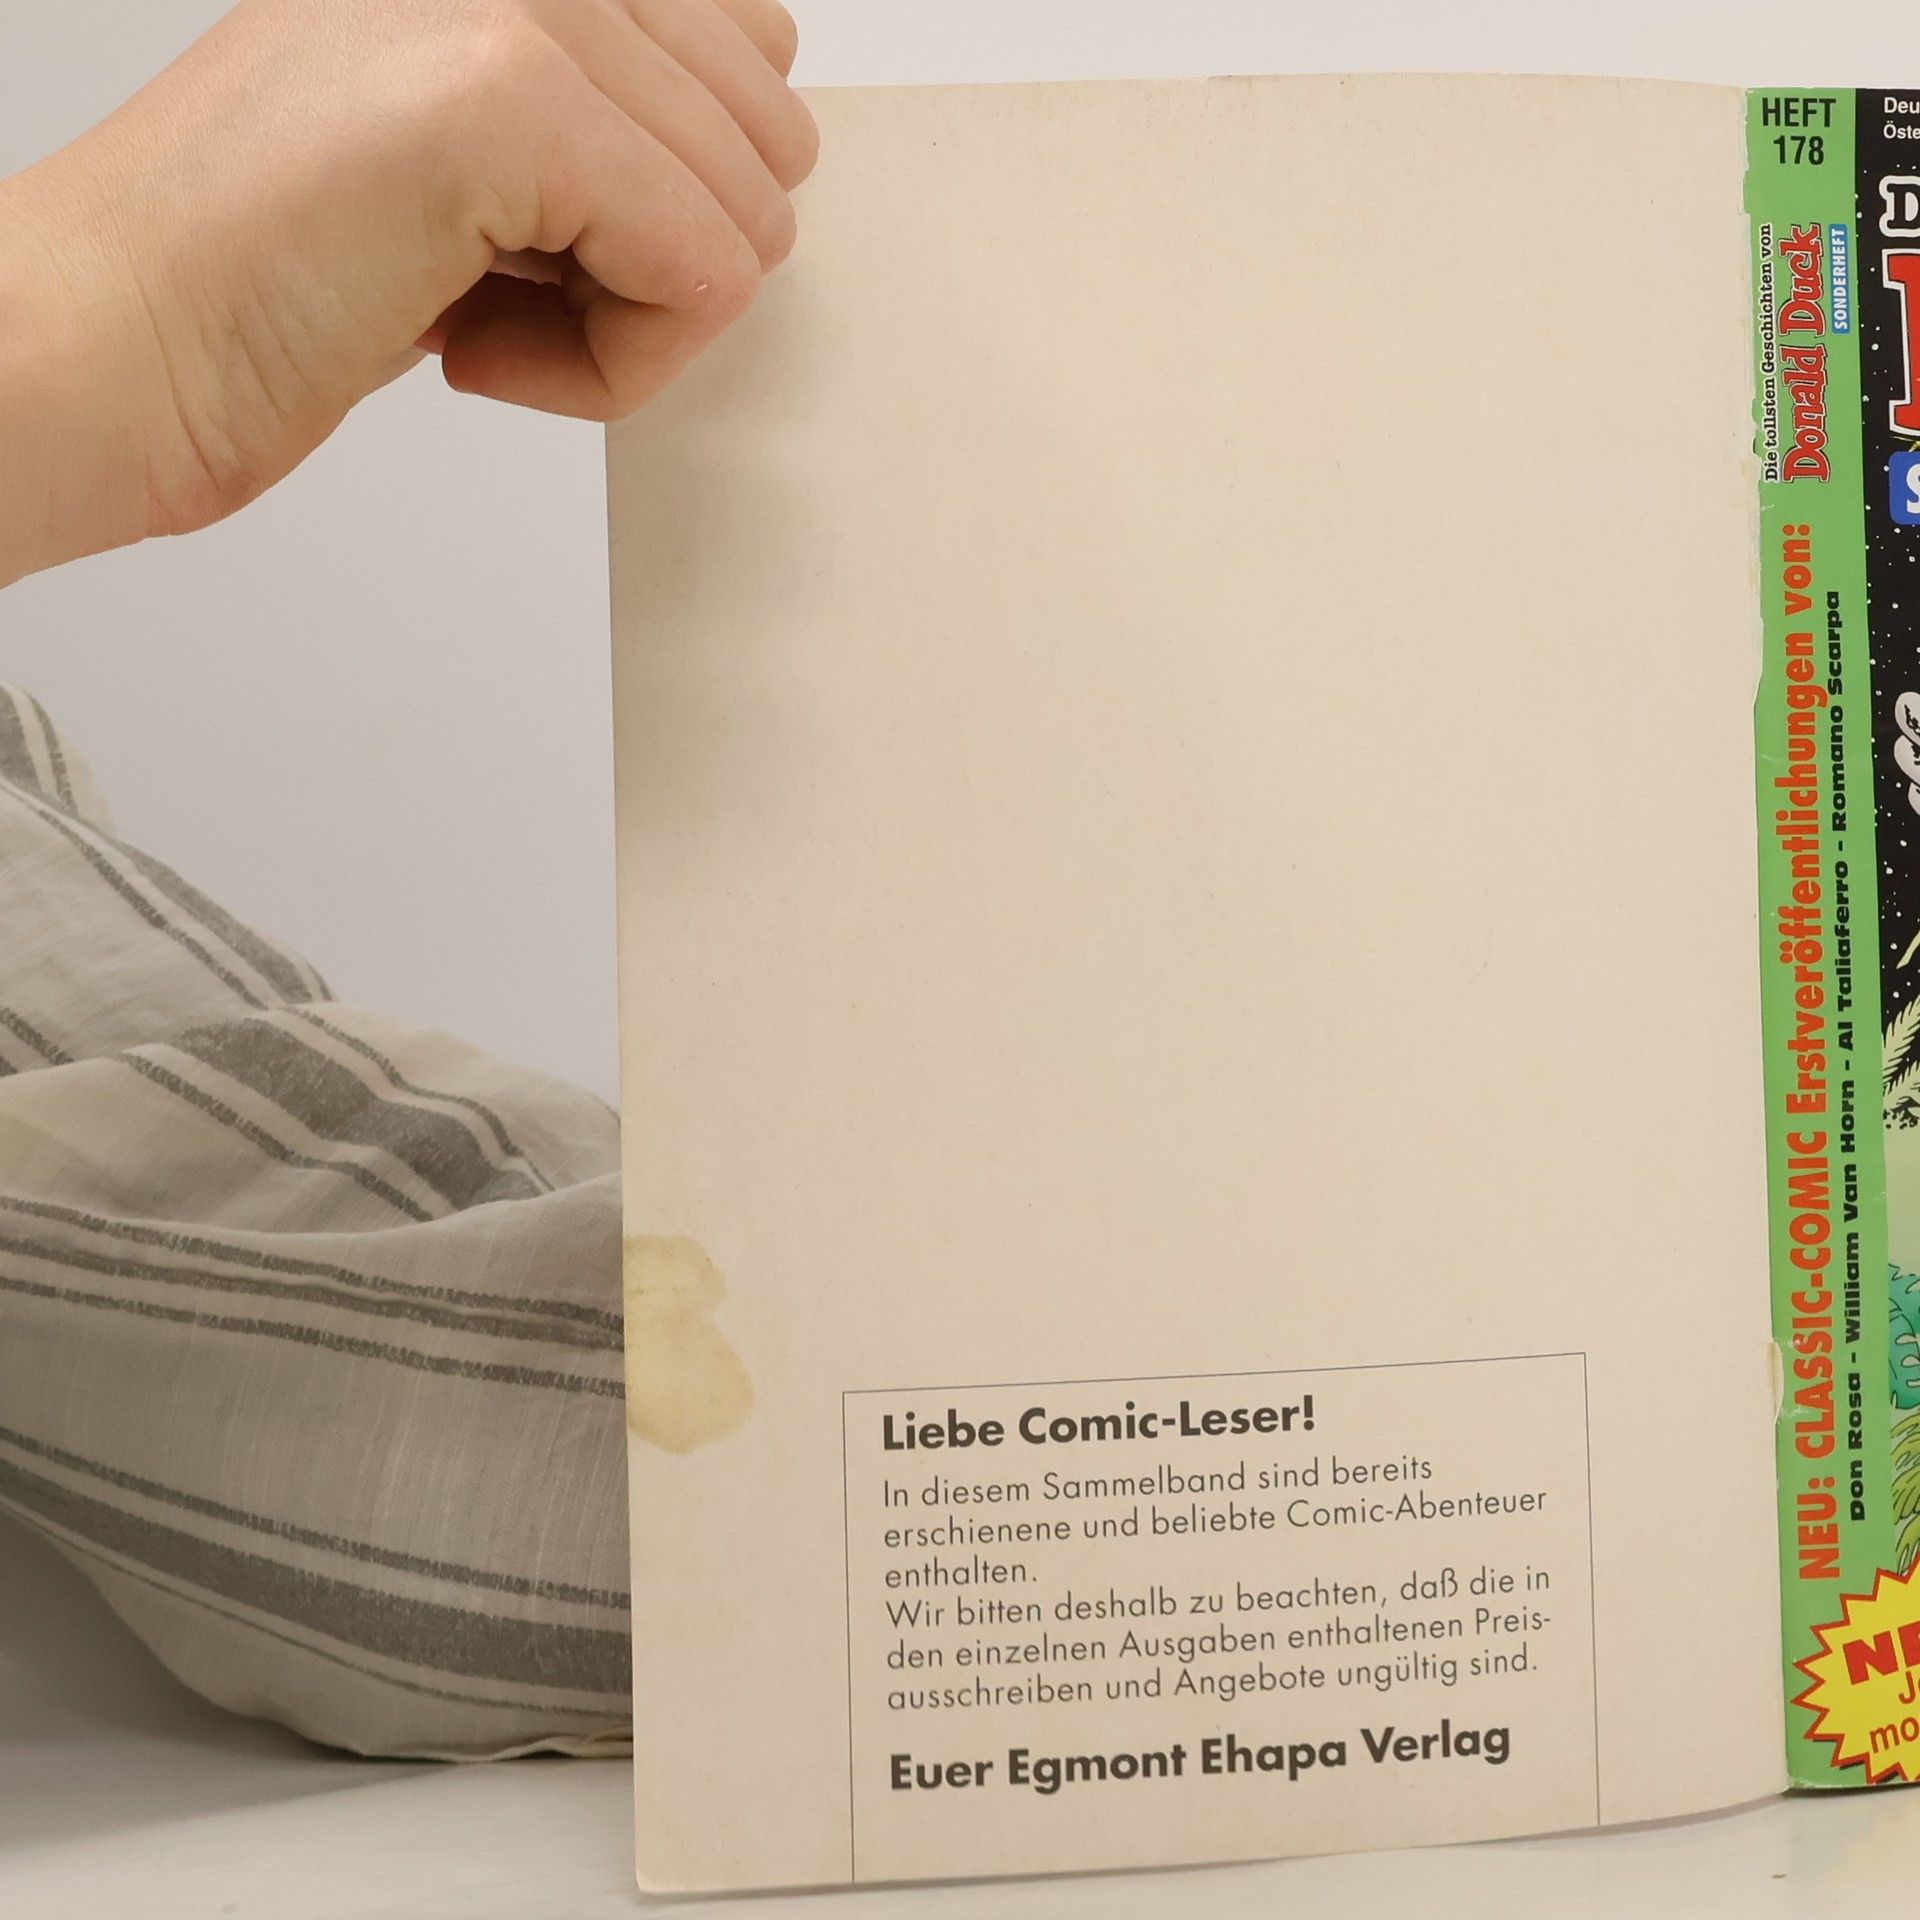 Liebe Comic-Leser!
In diesem Sammelband sind bereits
erschienene und beliebte Comic-Abenteuer
enthalten.
Wir bitten deshalb zu beachten, daß die in
den einzelnen Ausgaben enthaltenen Preis-
ausschreiben und Angebote ungültig sind.
Euer Egmont Ehapa Verlag
HEFT
178
Die tollsten Geschichten von
Donald Duck
SONDERHEFT
NEU: CLASSIC-COMIC Erstveröffentlichungen von:
Don Rosa - William Van Horn - Al Taliaferro - Romano Scarpa